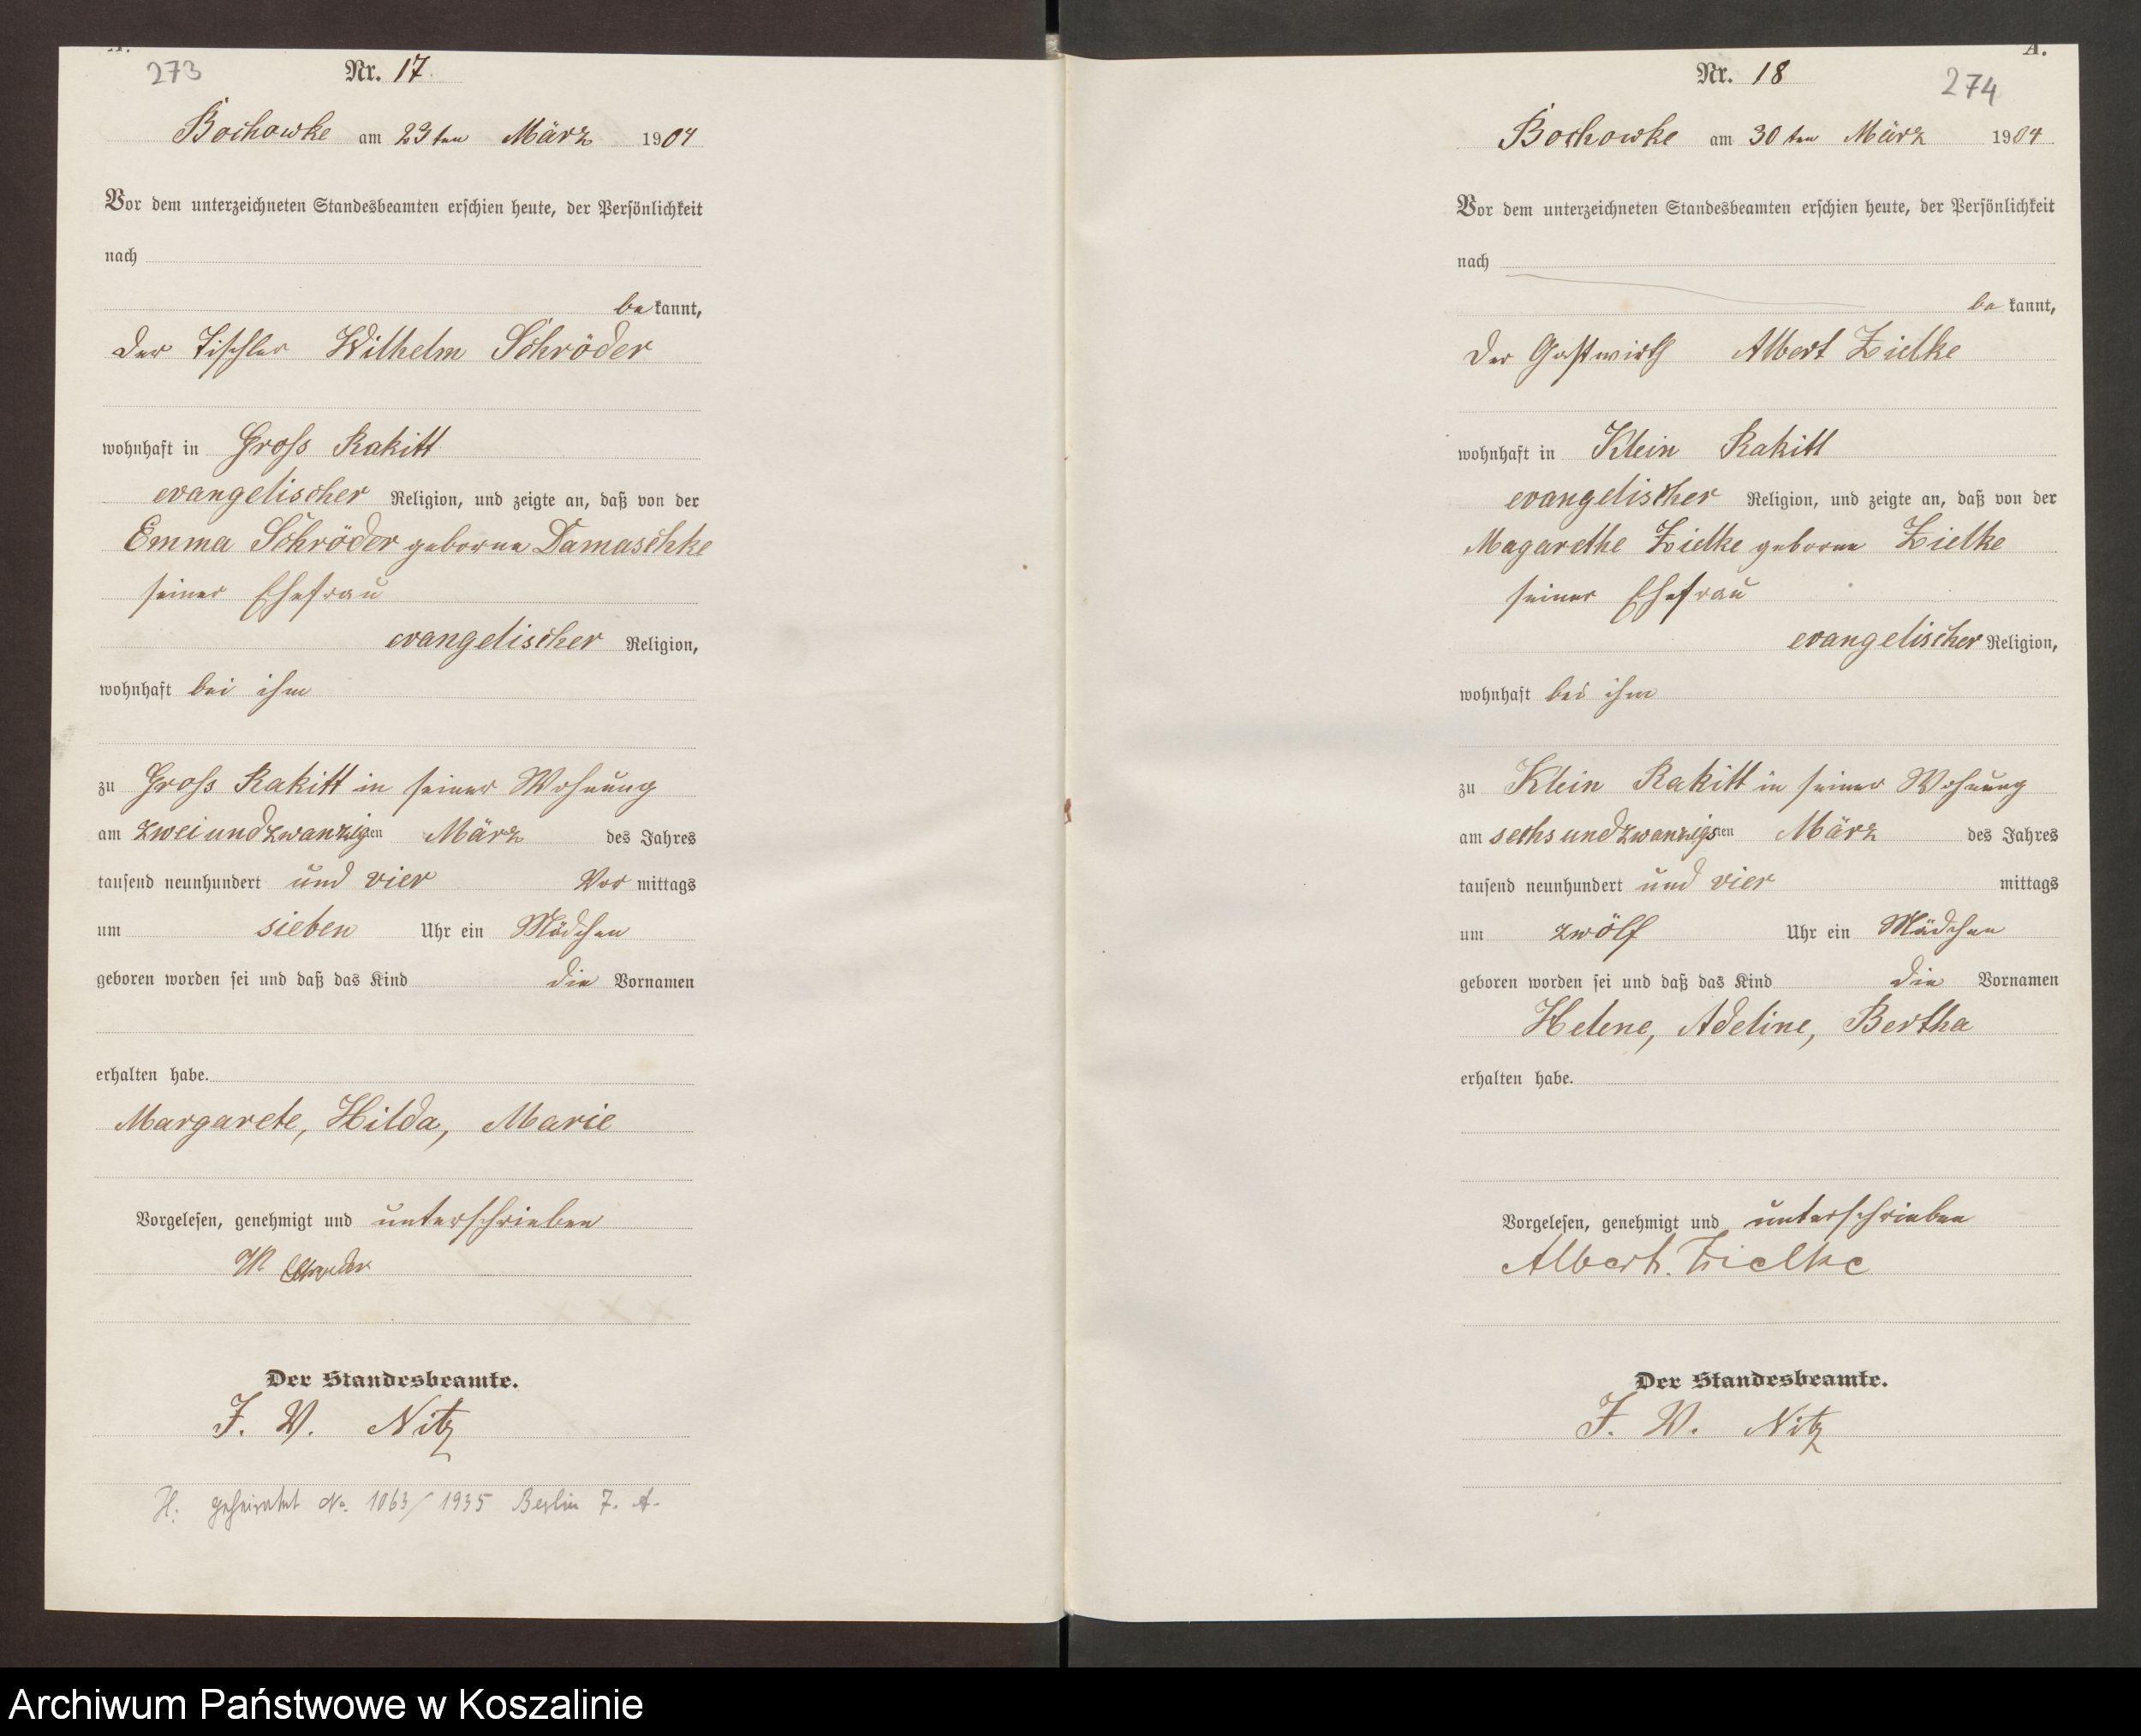 A.
273
Nr. 17.
Bochowke am 23ten März 1904
Vor dem unterzeichneten Standesbeamten erschien heute, der Persönlichkeit
nach
bekannt,
der Tischler Wilhelm Schröder
wohnhaft in Gross Rakitt
evangelischer Religion, und zeigte an, daß von der
Emma Schröder geborne Damaschke
seiner Ehefrau
evangelischer Religion,
wohnhaft bei ihm
zu Gross Rakitt in seiner Wohnung
am zweiundzwanzigten März des Jahres
tausend neunhundert und vier Vormittags
um sieben Uhr ein Mädchen
geboren worden sei und daß das Kind die Vornamen
erhalten habe.
Margarete, Hilda, Marie
Vorgelesen, genehmigt und unterschrieben
W
Der Standesbeamte.
F. W. Nitz
H: geheiratet No. 1063/1935 Berlin 7. A.
A.
Nr. 18
274
Bochowke am 30ten März 1904
Vor dem unterzeichneten Standesbeamten erschien heute, der Persönlichkeit
nach
bekannt,
der Gastwirth Albert Zielke
wohnhaft in Klein Rakitt
evangelischer Religion, und zeigte an, daß von der
Magarethe Zielke geborne Zielke
seiner Ehefrau
evangelischer Religion,
wohnhaft bei ihm
zu Klein Rakitt in seiner Wohnung
am sechsundzwanzigsten März des Jahres
tausend neunhundert und vier mittags
um zwölf Uhr ein Mädchen
geboren worden sei und daß das Kind die Vornamen
Helene, Adeline, Bertha
erhalten habe.
Vorgelesen, genehmigt und unterschrieben
Albert Zielke
Der Standesbeamte.
F. W. Nitz
Archiwum Państwowe w Koszalinie